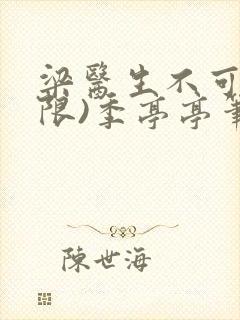 梁醫生不可
限)季亭亭筆
陳世海